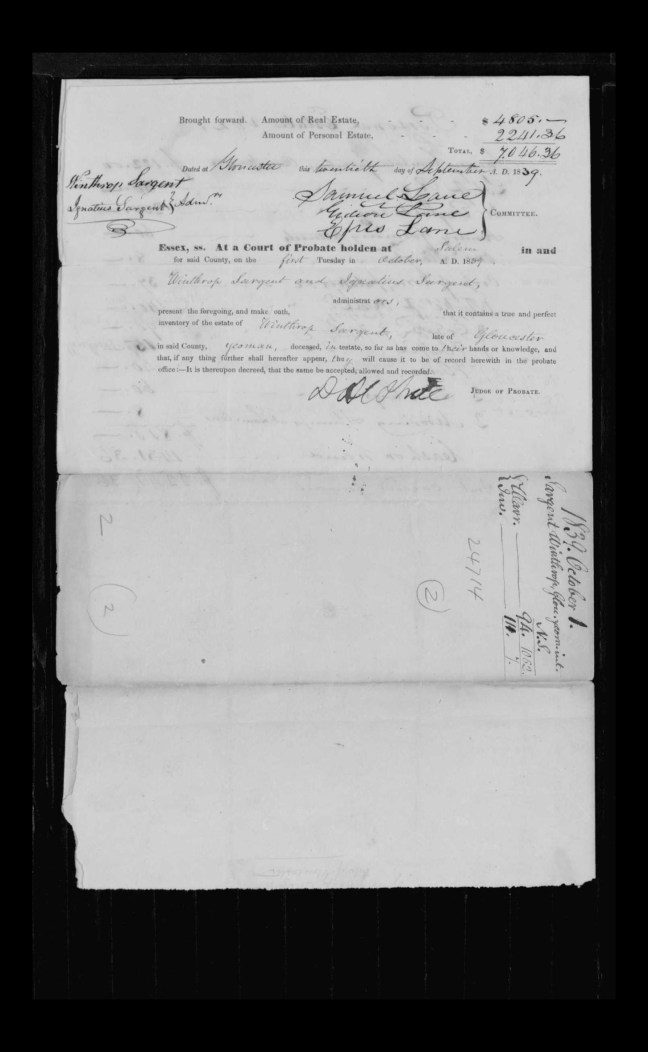 Brought forward. Amount of Real Estate, $ 4805.—
Amount of Personal Estate, 2241.36
TOTAL, $ 7.046.36
Dated at Gloucester this twentieth day of September A. D. 1839.
Winthrop Sargent
Ignatius Sargent } Admrs
Samuel Lane
Gideon Lane
Epes Lane
COMMITTEE.
Essex, ss. At a Court of Probate holden at Salem in and
for said County, on the first Tuesday in October, A. D. 1839
Winthrop Sargent and Ignatius Sargent,
administrators,
present the foregoing, and make oath, that it contains a true and perfect
inventory of the estate of Winthrop Sargent, late of Gloucester
in said County, yeoman, deceased, intestate, so far as has come to their hands or knowledge, and
that, if any thing further shall hereafter appear, they will cause it to be of record herewith in the probate
office:—It is thereupon decreed, that the same be accepted, allowed and recorded.
JUDGE OF PROBATE.
1839. October 1.
Sargent Winthrop, Glou. yeom. int.
N.S.
Warr. 94. 1052.
Inv. 110. 7.
24714
(2)
2
(2)